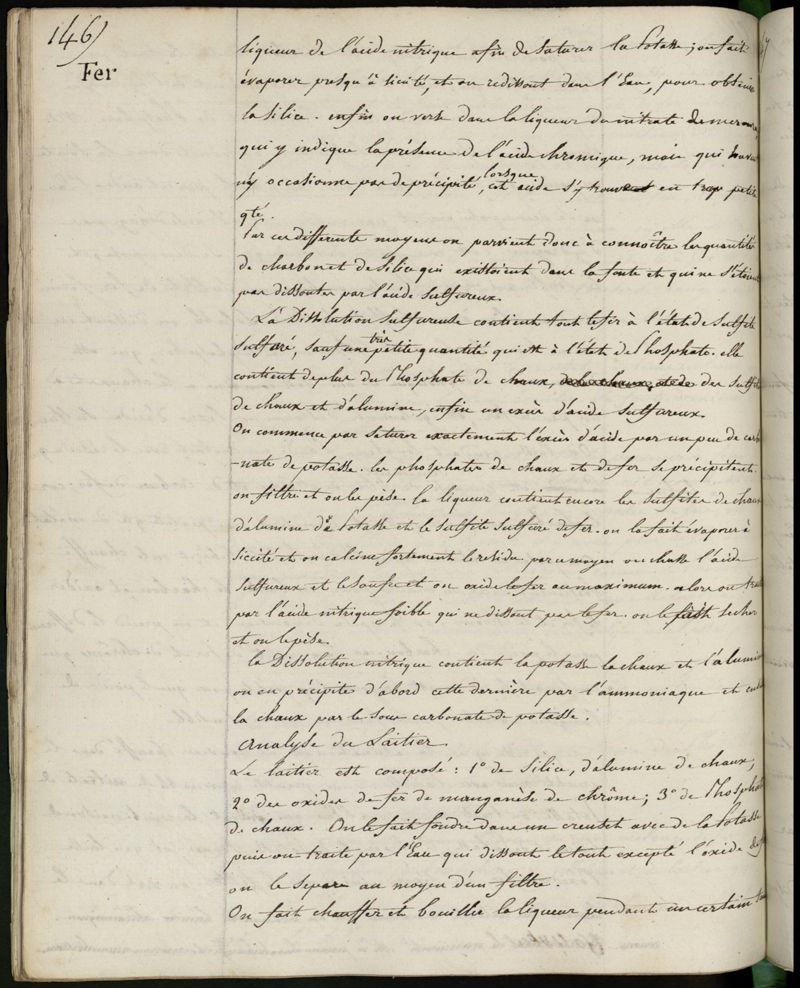 146)
Fer
liqueur de l'acide nitrique afin de saturer la Potasse; on fait
évaporer presqu'à siccité, et on redissout dans l'Eau, pour obtenir
la silice. enfin on verse dans la liqueur du nitrate de mercure
qui y indique la présence de l'acide chromique, mais qui
n'y occasionne pas de précipité, lorsque cet acide s'y trouve en trop petite
qté.
Par ces différents moyens on parvient donc à connoître les quantités
de charbon et de silice qui existoient dans la fonte et qui ne s'étoient
pas dissoutes par l'acide sulfureux.
La Dissolution sulfureuse contient tout le fer à l'état de sulfite
sulfuré, sauf une très petite quantité qui est à l'état de Phosphate. elle
contient de plus du Phosphate de chaux, des sulfites
de chaux et d'alumine, enfin un excès d'acide sulfureux.
On commence par saturer exactement l'excès d'acide par un peu de carbo
-nate de potasse. les phosphates de chaux et de fer se précipitent
on filtre et on les pèse. la liqueur contient encore les sulfites de chaux
d'alumine de Potasse et le sulfite sulfuré de fer. on la fait évaporer à
siccité et on calcine fortement le résidu par ce moyen on chasse l'acide
sulfureux et le soufre et on oxide le fer au maximum. alors on traite
par l'acide nitrique foible qui ne dissout pas le fer. on le fait sécher
et on le pèse.
la Dissolution nitrique contient la potasse la chaux et l'alumine
on en précipite d'abord cette dernière par l'ammoniaque et ensuite
la chaux par le sous carbonate de potasse.
Analyse du Laitier
Le laitier est composé: 1° de silice, d'alumine de chaux,
2° des oxides de fer de manganèse de chrôme; 3° de Phosphate
de chaux. On le fait fondre dans un creuset avec de la Potasse
puis on traite par l'Eau qui dissout le tout excepté l'oxide de fer
on le sépare au moyen d'un filtre.
On fait chauffer et bouillir la liqueur pendant un certain